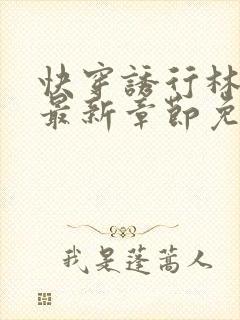 快穿誘行林
最新章節免
我是蓬蒿人